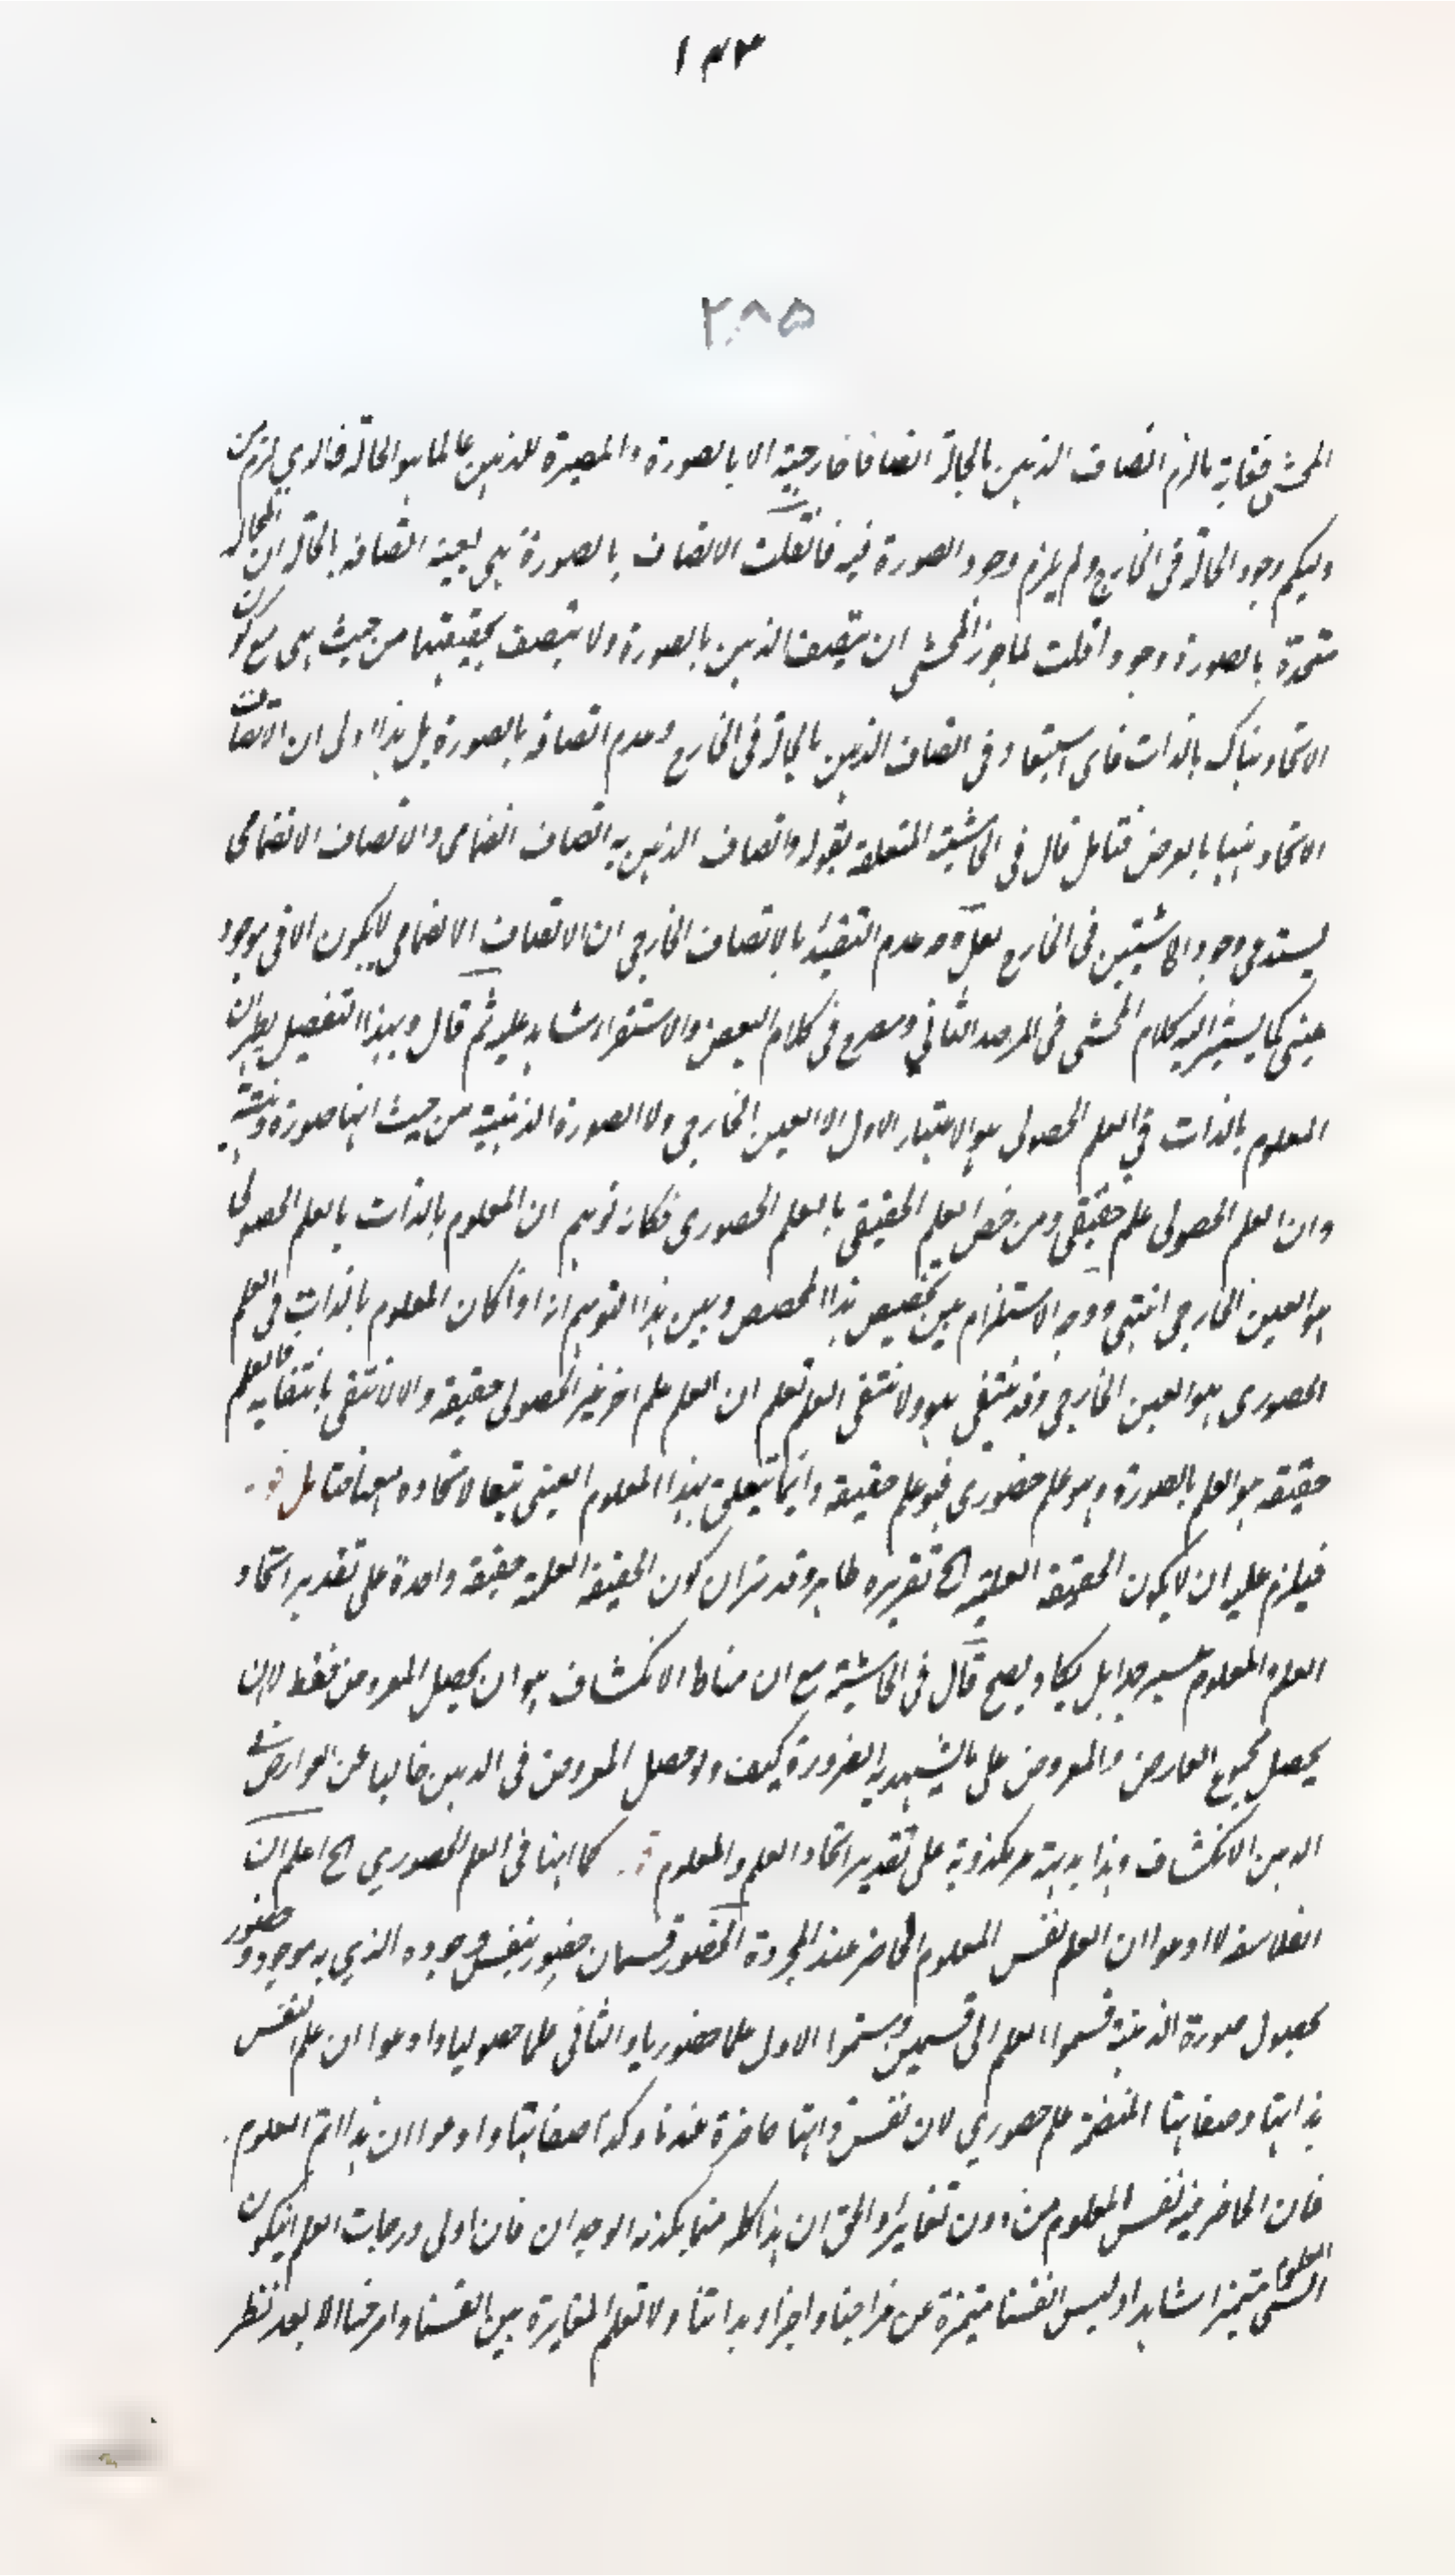 ١٣٣
٢٨٥
المحشى فغاية ما لزم اتصاف الذهن بالحالة اتصافا خارجية لا بالصورة والمصيرة للذهن عالما هو الحالة فالذي لزم من
وليكم وجود الحالة فى الخارج ولم يلزم وجود الصورة فيه فان قلت الاتصاف بالصورة هى بعينه اتصافه بالحالة ان الحالة
متحدة بالصورة وجودا قلت لما جوز المحشى ان يتصف الذهن بالصورة ولا يتصف بحقيقتها من حيث هى مع كون
الاتحاد هناك بالذات فاى استبعاد فى اتصاف الذهن بالحالة فى الخارج وعدم اتصافه بالصورة بل هذا اولى ان الاتصاف
الاتحاد بينهما بالعرض فتامل قال فى الحاشية المتعلقة بقوله واتصاف الذهن به اتصاف انضمامى والاتصاف الانضمامى
يستدعى وجود الحاشيتين فى الخارج لعل وجه عدم التقييد بالاتصاف الخارجى ان الاتصاف الانضمامى لا يكون الا فى موجود
عينى كما يشير اليه كلام المحشى فى المرصد الثاني ومصرح فى كلام البعض والاستقراء شاهد عليه ثم قال وبهذا التفصيل يظهر ان
المعلوم بالذات في العلم الحصولى هو الاعتبار الاول لا العين الخارجى ولا الصورة الذهنية من حيث انها صورة ذهنية
وان العلم الحصولى علم حقيقى ومن خص العلم الحقيقى بالعلم الحضورى فكانه توهم ان المعلوم بالذات بالعلم الحصولى
هو العين الخارجى انتهى ووجه الاستلزام بين تخصيص هذا المخصص وبين هذا التوهم انه اذا كان المعلوم بالذات فى العلم
الحضورى هو العين الخارجى وقد ينتفى هو ولا ينتفى العلم تعلم ان العلم علم اخر غير الحصولى حقيقة والا لانتفى بانتفايه فالعلم
حقيقة هو العلم بالصورة وهو علم حضورى فهو علم حقيقة وانما يتعلق بهذا المعلوم العينى تبعا لاتحاده معها فتامل قوله
فيلزم عليه ان لا يكون الحقيقة العلمية الخ تقريره ظاهر وقد مر ان كون الحقيقة العلمية حقيقة واحدة على تقدير اتحاد
العلم والمعلوم عسير جدا بل يكاد يصح قال فى الحاشية مع ان مناط الانكشاف هو ان يحصل المعروض فقط لا ان
يحصل مجموع العارض والمعروض على ما يشهد به الضرورة كيف ولو حصل المعروض فى الذهن خاليا عن العوارض فى
الذهن الانكشاف وهذا بديهة مكذوبة على تقدير اتحاد العلم والمعلوم قوله كما انها فى العلم الحضوري الخ اعلم ان
الفلاسفة لما ادعوا ان العلم نفس المعلوم الحاضر عند المجردة الحضور قسمان حضور بنفس وجوده الذي به موجود وحضور
بحصول صورة الذهنية قسموا العلم الى قسمين وسموا الاول علما حضوريا والثانى علما حصوليا وادعوا ان علم النفس
بذاتها وصفاتها المنضمة علم حضوري لان نفس ذاتها حاضرة عندنا وكذا صفاتها وادعوا ان هذا اتم العلوم
فان الحاضر فيه نفس المعلوم من دون تغاير والحق ان هذا كله مما يكذبه الوجدان فان اولى درجات العلم ان يكون
الشى المعلوم متميزا مشاهدا وليس انفسنا متميزة عن مزاجنا واجزاء بداننا ولا تعلم المغايرة بين انفسنا وامزجتنا الا بعد نظر